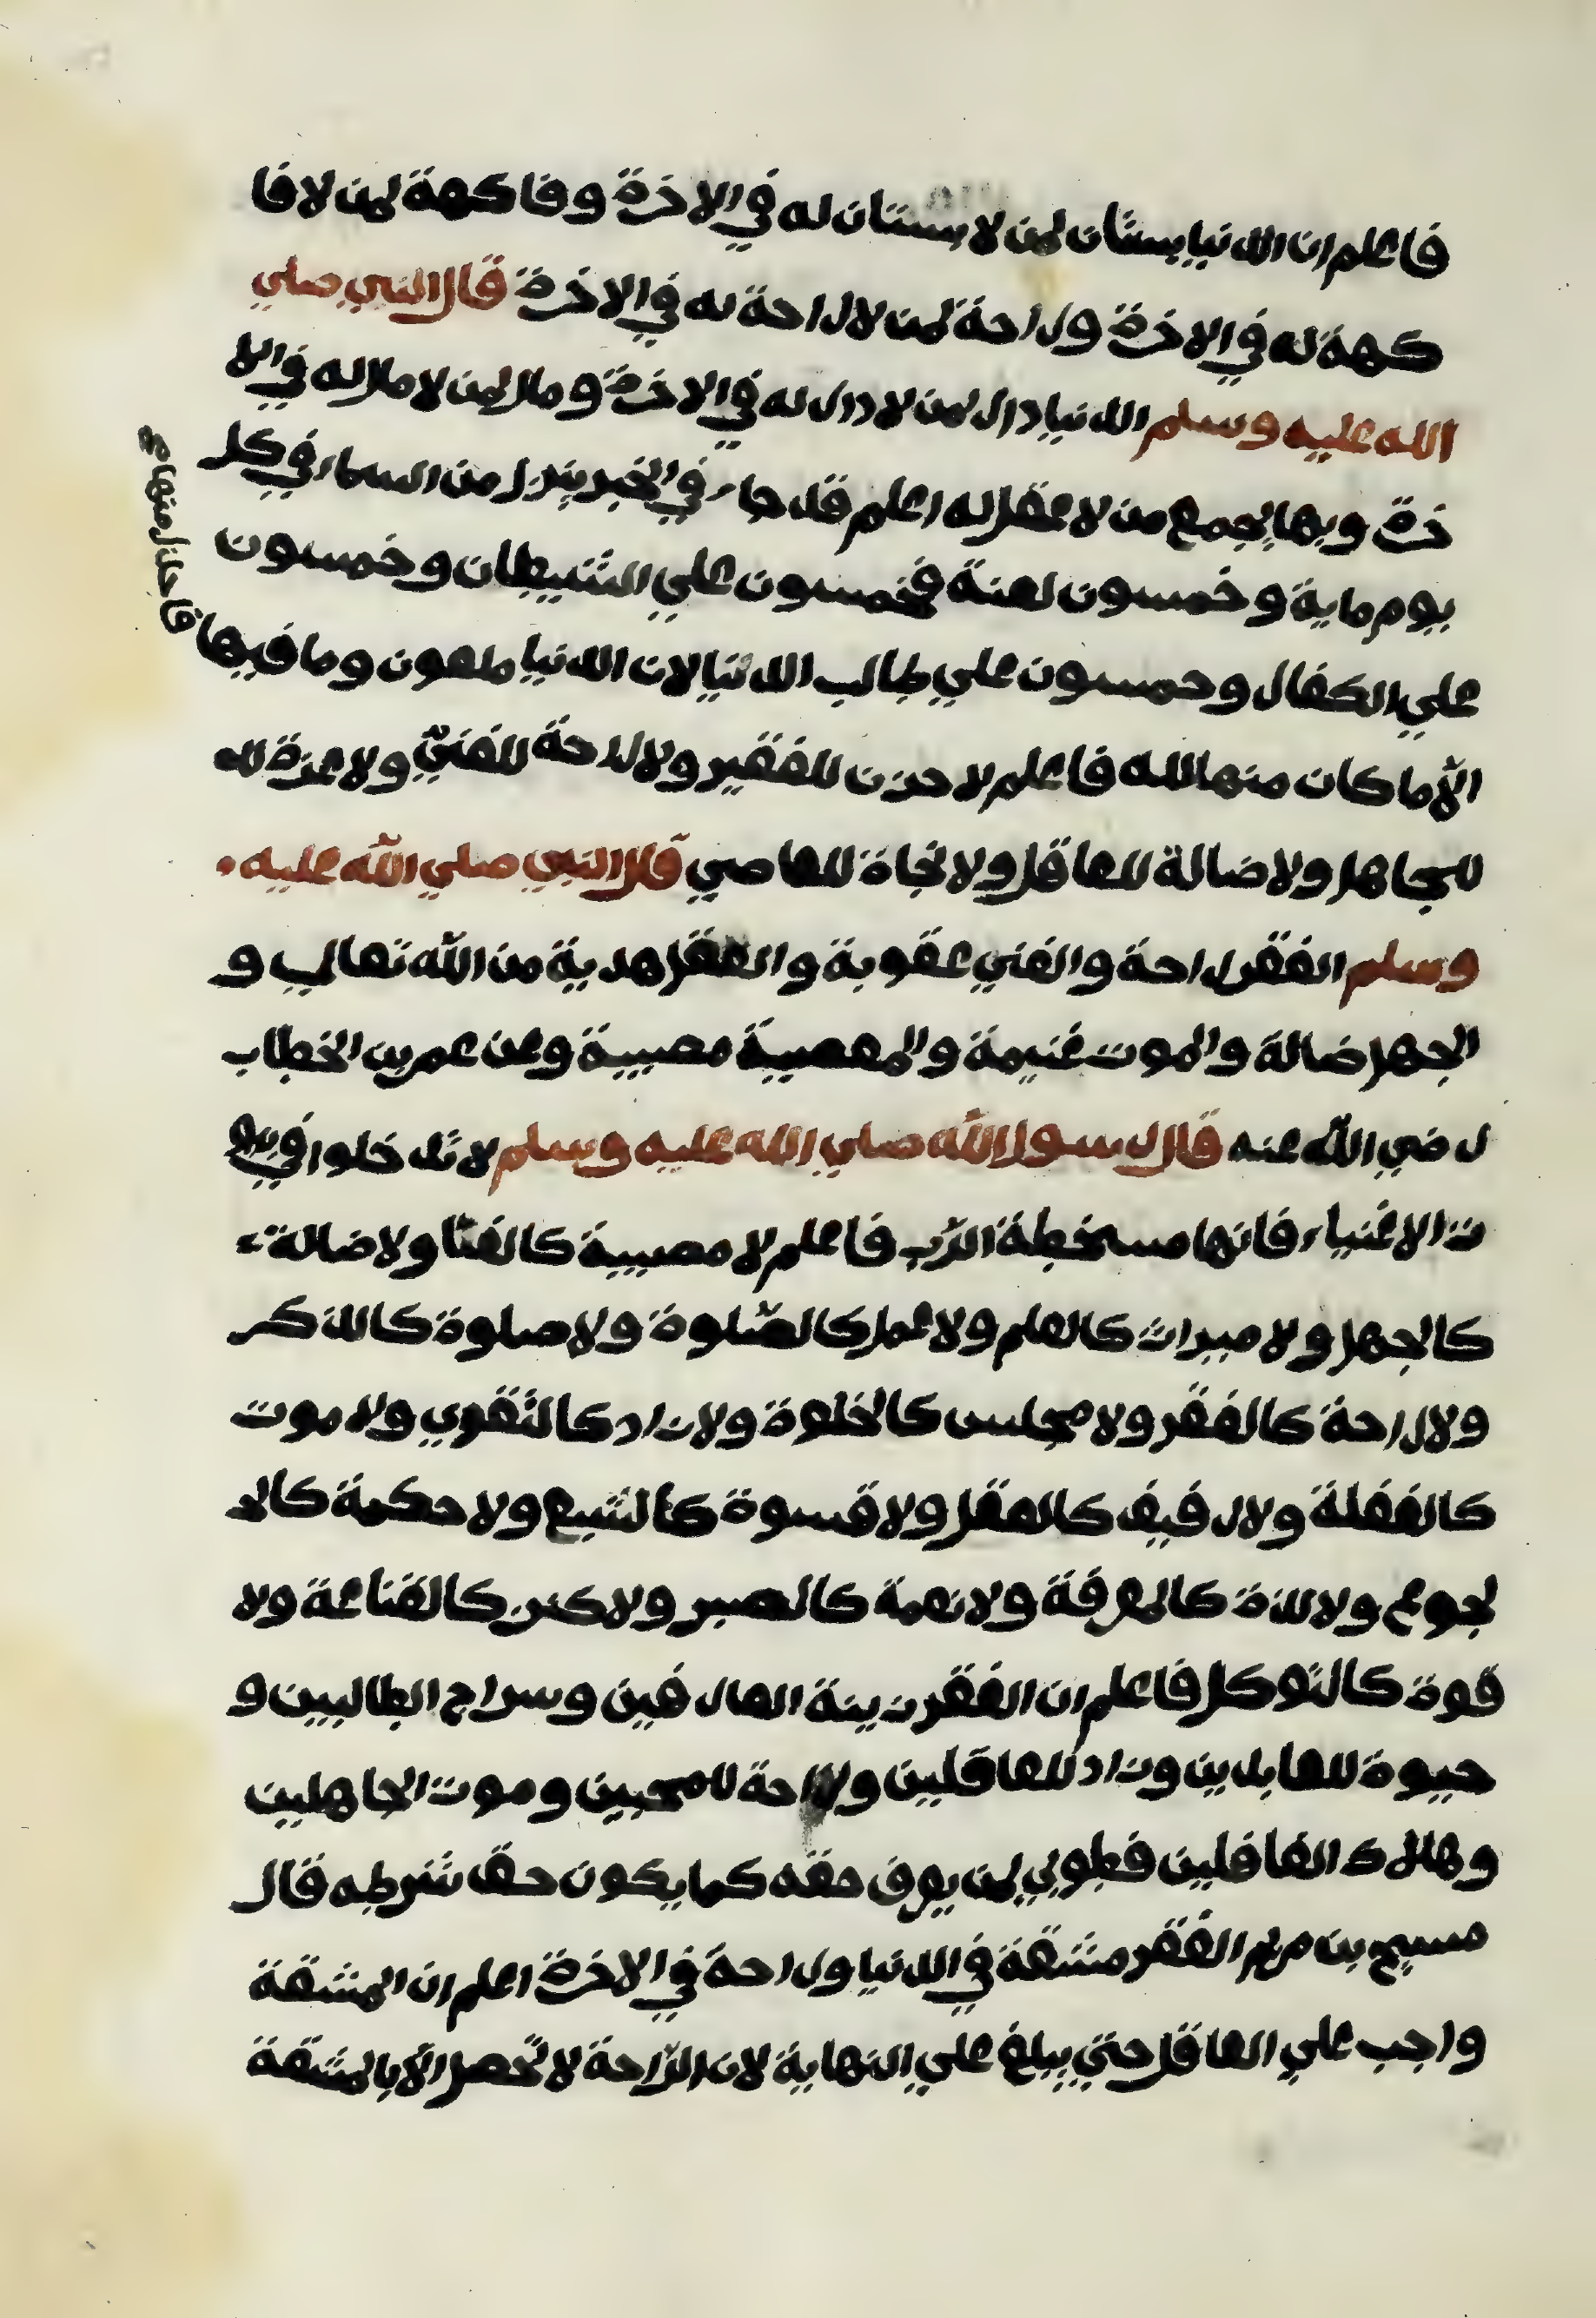 فاعلم ان الدنيا بستان لمن لا بستان له في الاخرة وفاكهة لمن لا فا
كهة له في الاخرة وراحة لمن لا راحة له في الاخرة قال النبي صلي
الله عليه وسلم الدنيا دار لمن لا دار له في الاخرة ومال لمن لا مال له في الا
خرة وبها يجمع من لا عقل له اعلم قد جاء في الخبر ينزل من السماء في كل
يوم ماية وخمسون لعنة فخمسون علي الشيطان وخمسون
علي الكفار وخمسون علي طالب الدنيا لان الدنيا ملعون وما فيها فاحذر منها مع
الّا ما كان منها لله فاعلم لا حزن للفقير ولا راحة للغنيّ ولا عزة لله
للجاهل ولا ضالة للعاقل ولا نجاة للعاصي قال النبي صلي الله عليه
وسلم الفقر راحة والغني عقوبة والفقر هدية من الله تعالي و
الجهل ضالة والموت غنيمة والمعصية مصيبة وعن عمر بن الخطاب
رضي الله عنه قال رسول الله صلي الله عليه وسلم لا تدخلوا في بيو
ت الاغنياء فانها مسخطة الرّب فاعلم لا مصيبة كالغنا ولا ضالة
كالجهل ولا ميراث كالعلم ولا عمل كالصّلوة ولا صلوة كالذكر
ولا راحة كالفقر ولا مجلس كالخلوة ولا زاد كالتقوي ولا موت
كالغفلة ولا رفيف كالعقل ولا قسوة كالشبع ولا حكمة كالا
لجوع ولا لذة كالمعرفة ولا نعمة كالصبر ولا كنز كالقناعة ولا
قوة كالتوكل فاعلم ان الفقر زينة العارفين وسراج الطالبين و
حيوة للعابدين وزاد للعاقلين وراحة للمحبين وموت الجاهلين
وهلاك الغافلين فطوبي لمن يعرف حقه كما يكون حق شرطه قال
مسيح بن مريم الفقر مشقة في الدنيا وراحة في الاخرة اعلم ان المشقة
واجب علي العاقل حتي يبلغ علي النهاية لان الرّاحة لا تحصل الّا بالمشقة